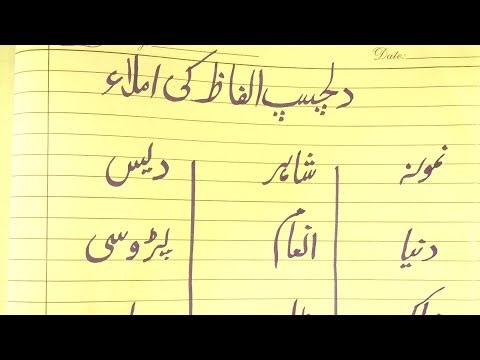 Date:
دلچسپ الفاظ کی املاء
نمونہ شاہر دیس
دنیا انعام پڑوسی